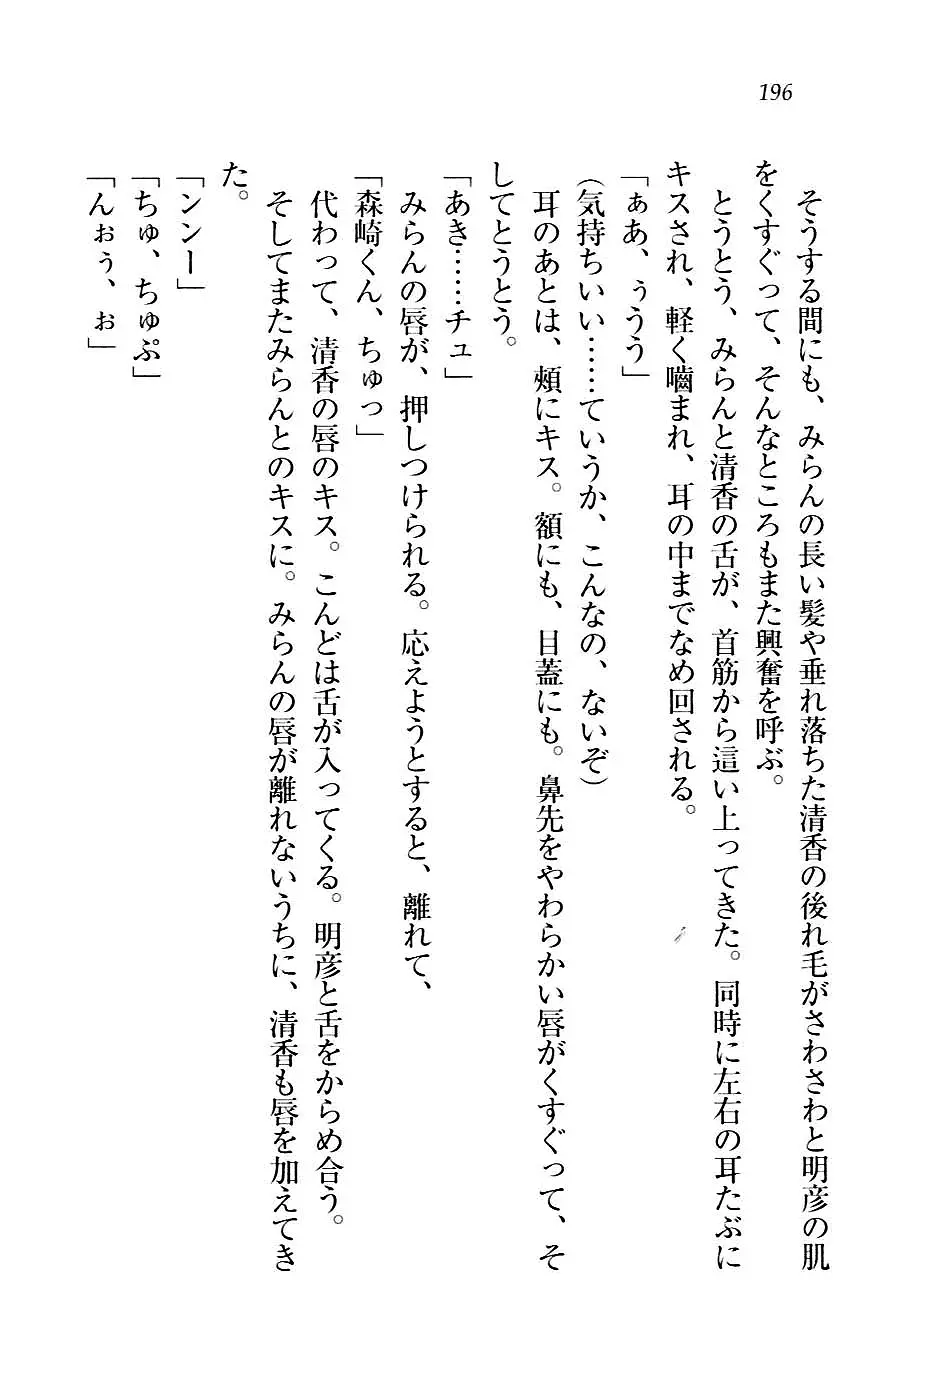 196
そうする間にも、みらんの長い髪や垂れ落ちた清香の後れ毛がさわさわと明彦の肌
をくすぐって、そんなところもまた興奮を呼ぶ。
とうとう、みらんと清香の舌が、首筋から這い上ってきた。同時に左右の耳たぶに
キスされ、軽く嚙まれ、耳の中までなめ回される。
「ぁあ、ぅうう」
（気持ちいい……ていうか、こんなの、ないぞ）
耳のあとは、頰にキス。額にも、目蓋にも。鼻先をやわらかい唇がくすぐって、そ
してとうとう。
「あき……チュ」
みらんの唇が、押しつけられる。応えようとすると、離れて、
「森崎くん、ちゅっ」
代わって、清香の唇のキス。こんどは舌が入ってくる。明彦と舌をからめ合う。
そしてまたみらんとのキスに。みらんの唇が離れないうちに、清香も唇を加えてき
た。
「ンンー」
「ちゅ、ちゅぷ」
「んぉぅ、ぉ」